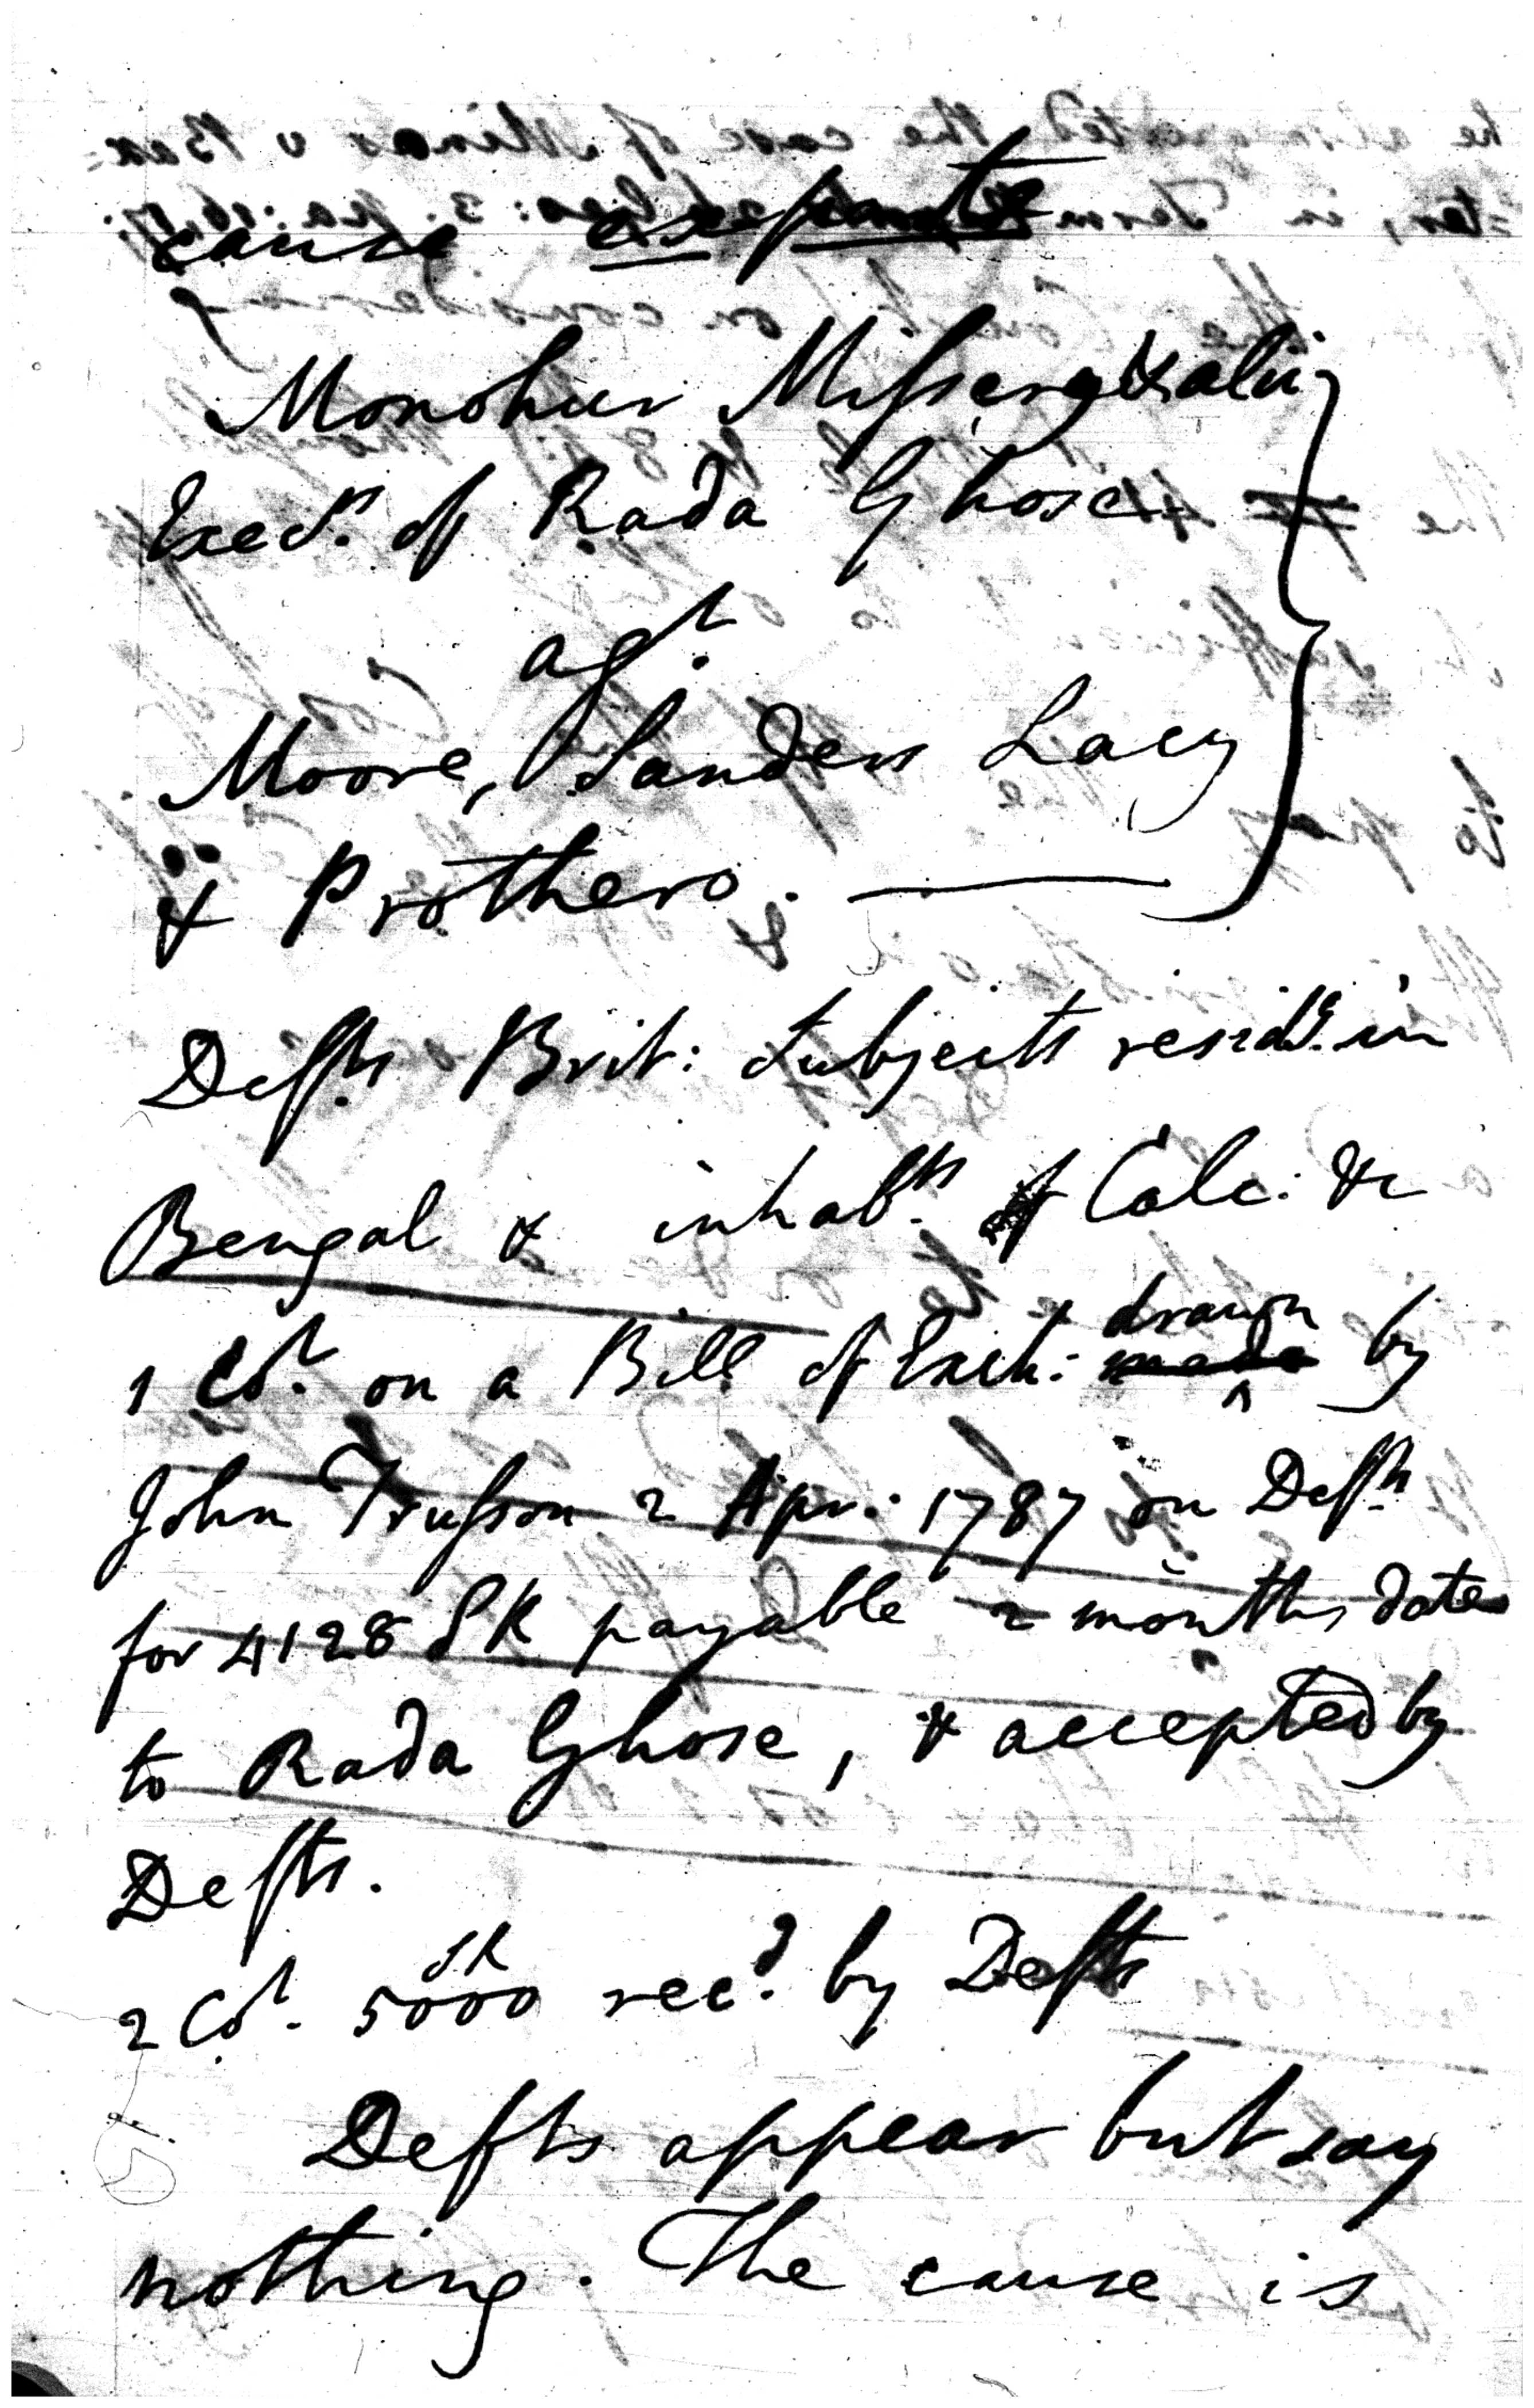 cause ex parte
Monohur Misser & alii
Exec.rs of Rada Ghose
ag.t
Moore, Sanders Lacy
& Prothero.
Deft.s Brit: Subjects resid.g in
Bengal & inhab.ts of Calc: &c
1 Co.t on a Bill of Exch: drawn by
John Trusson 2 Apr: 1787 on Deft.s
for 4128 SR payable 2 months date
to Rada Ghose, & accepted by
Defts.
2 Co.t 5000 SR rec.d by Defts
Defts appear but say
nothing. The cause is